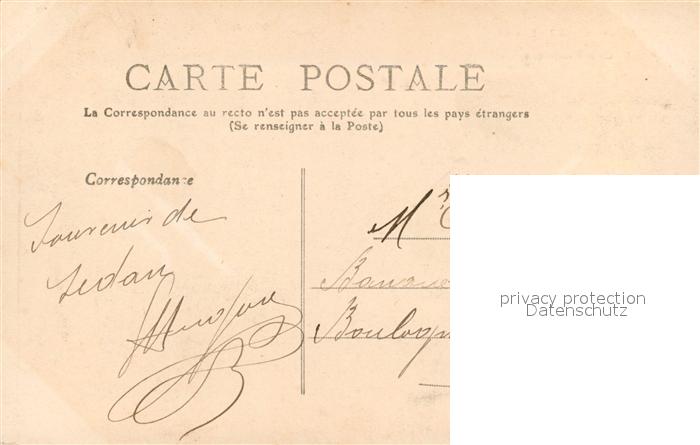 CARTE POSTALE
La Correspondance au recto n'est pas acceptée par tous les pays étrangers
(Se renseigner à la Poste)
Correspondance
Souvenir de
Sedan
M
Boulogn
privacy protection
Datenschutz